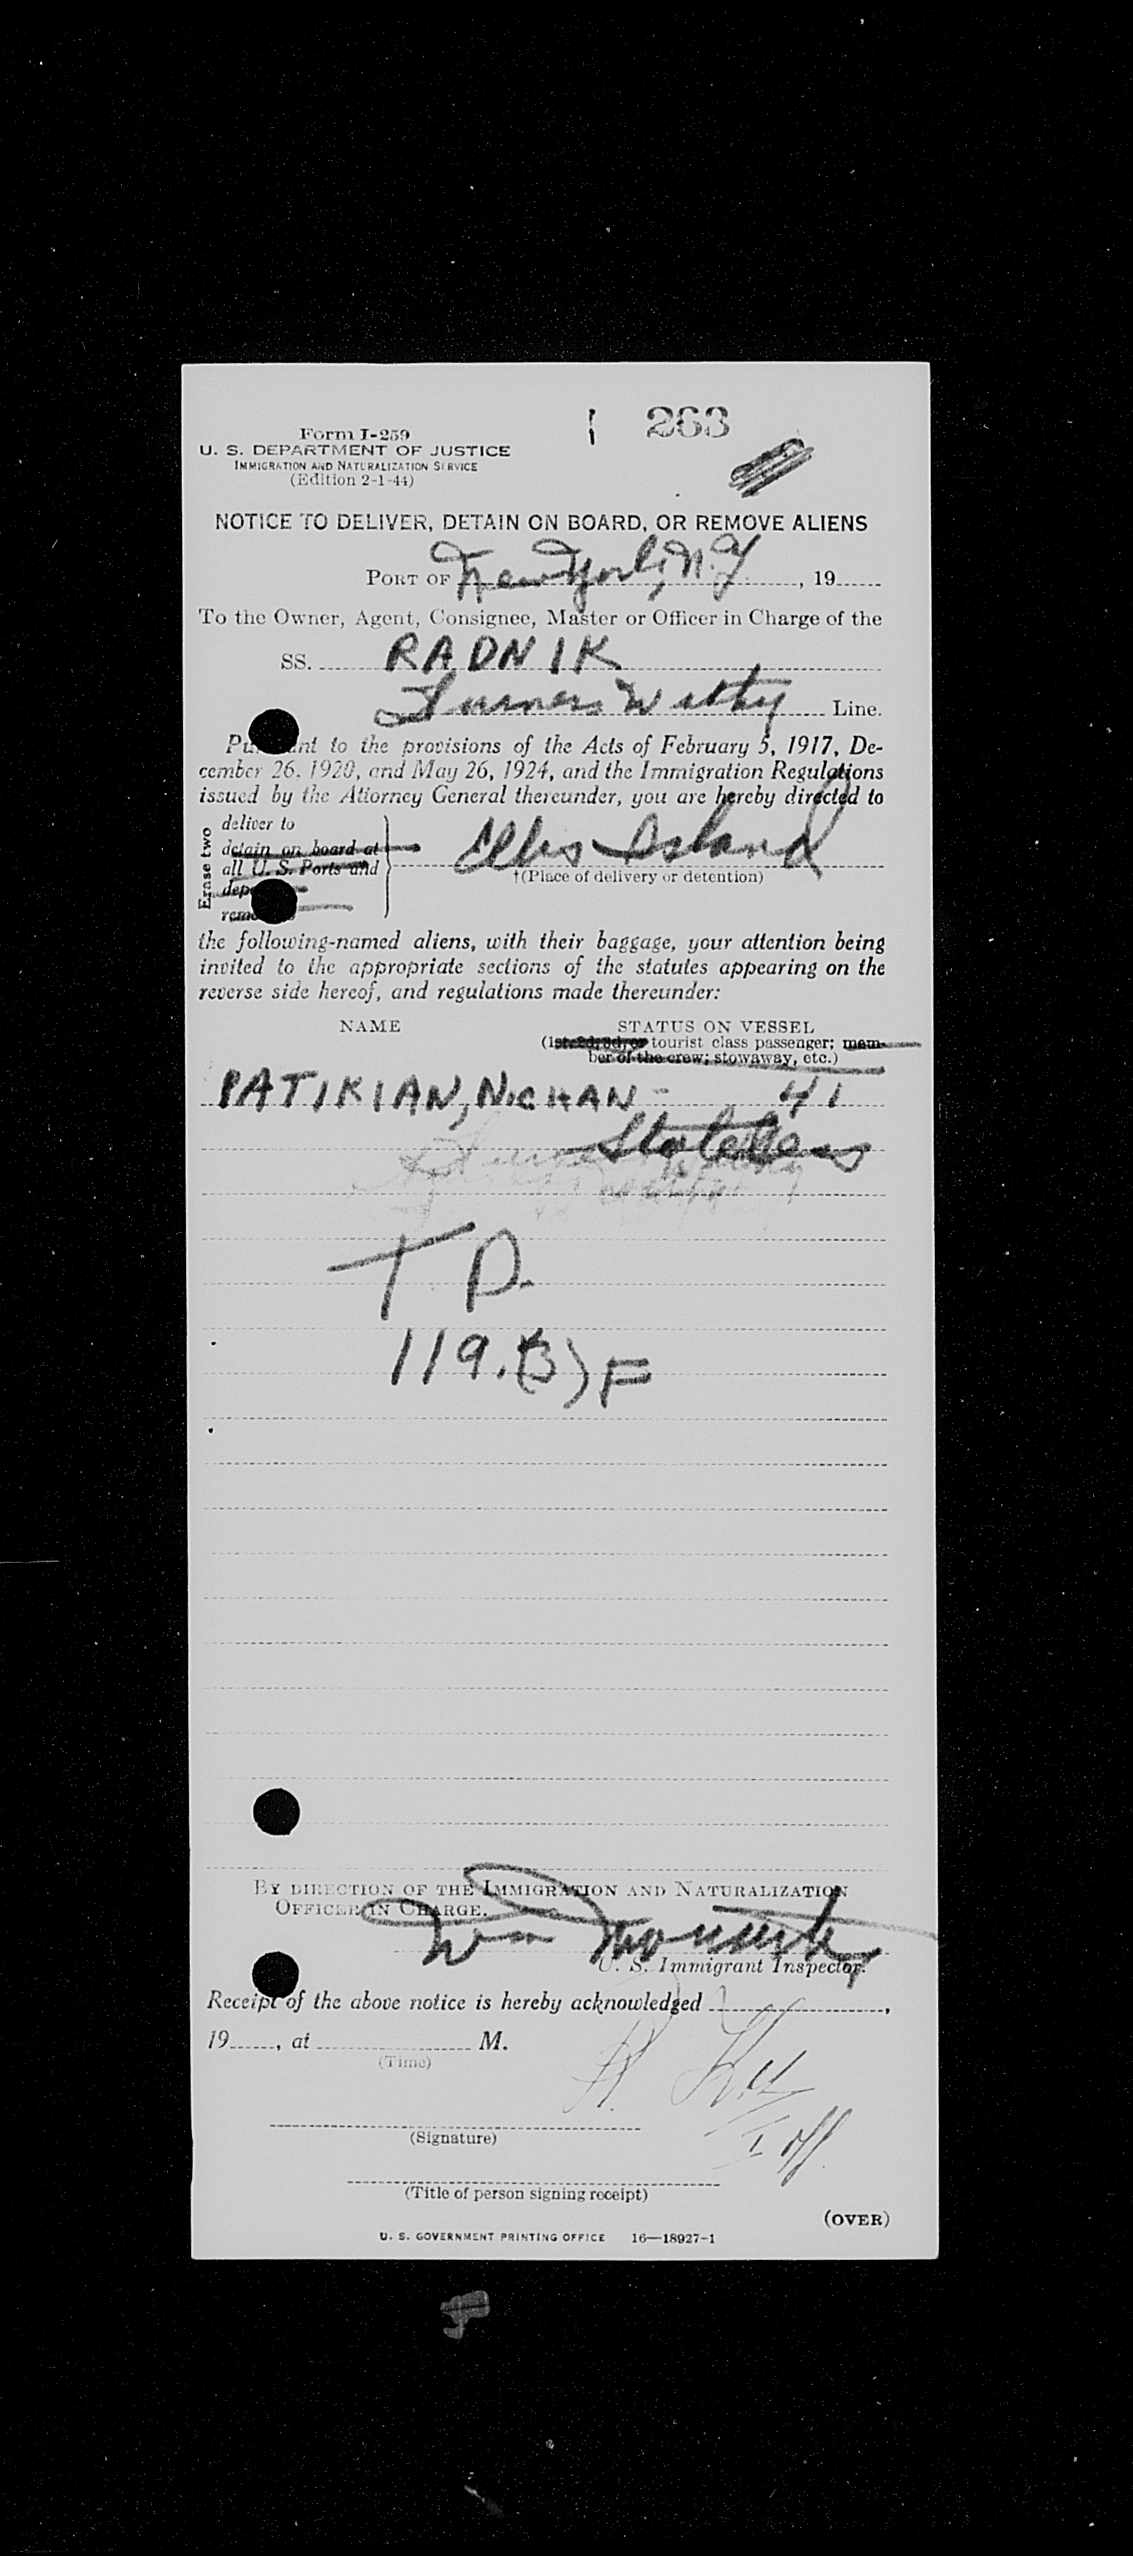 263
Form I-259
U. S. DEPARTMENT OF JUSTICE
IMMIGRATION AND NATURALIZATION SERVICE
(Edition 2-1-44)
NOTICE TO DELIVER, DETAIN ON BOARD, OR REMOVE ALIENS
PORT OF New York, N.Y , 19
To the Owner, Agent, Consignee, Master or Officer in Charge of the
SS. RADNIK
Line.
Pursuant to the provisions of the Acts of February 5, 1917, De-
cember 26, 1920, and May 26, 1924, and the Immigration Regulations
issued by the Attorney General thereunder, you are hereby directed to
Erase two
deliver to
detain on board at
all U. S. Ports and
Ellis Island
†(Place of delivery or detention)
the following-named aliens, with their baggage, your attention being
invited to the appropriate sections of the statutes appearing on the
reverse side hereof, and regulations made thereunder:
NAME STATUS ON VESSEL
(1st, 2d, 3d, or tourist class passenger; mem-
ber of the crew; stowaway, etc.)
PATIKIAN, NICHAN - 41
Stateless
T D.
119.(3) F
BY DIRECTION OF THE IMMIGRATION AND NATURALIZATION
OFFICER IN CHARGE.
U. S. Immigrant Inspector.
Receipt of the above notice is hereby acknowledged ,
19 , at M.
(Time)
(Signature)
(Title of person signing receipt)
(OVER)
U. S. GOVERNMENT PRINTING OFFICE 16—18927-1